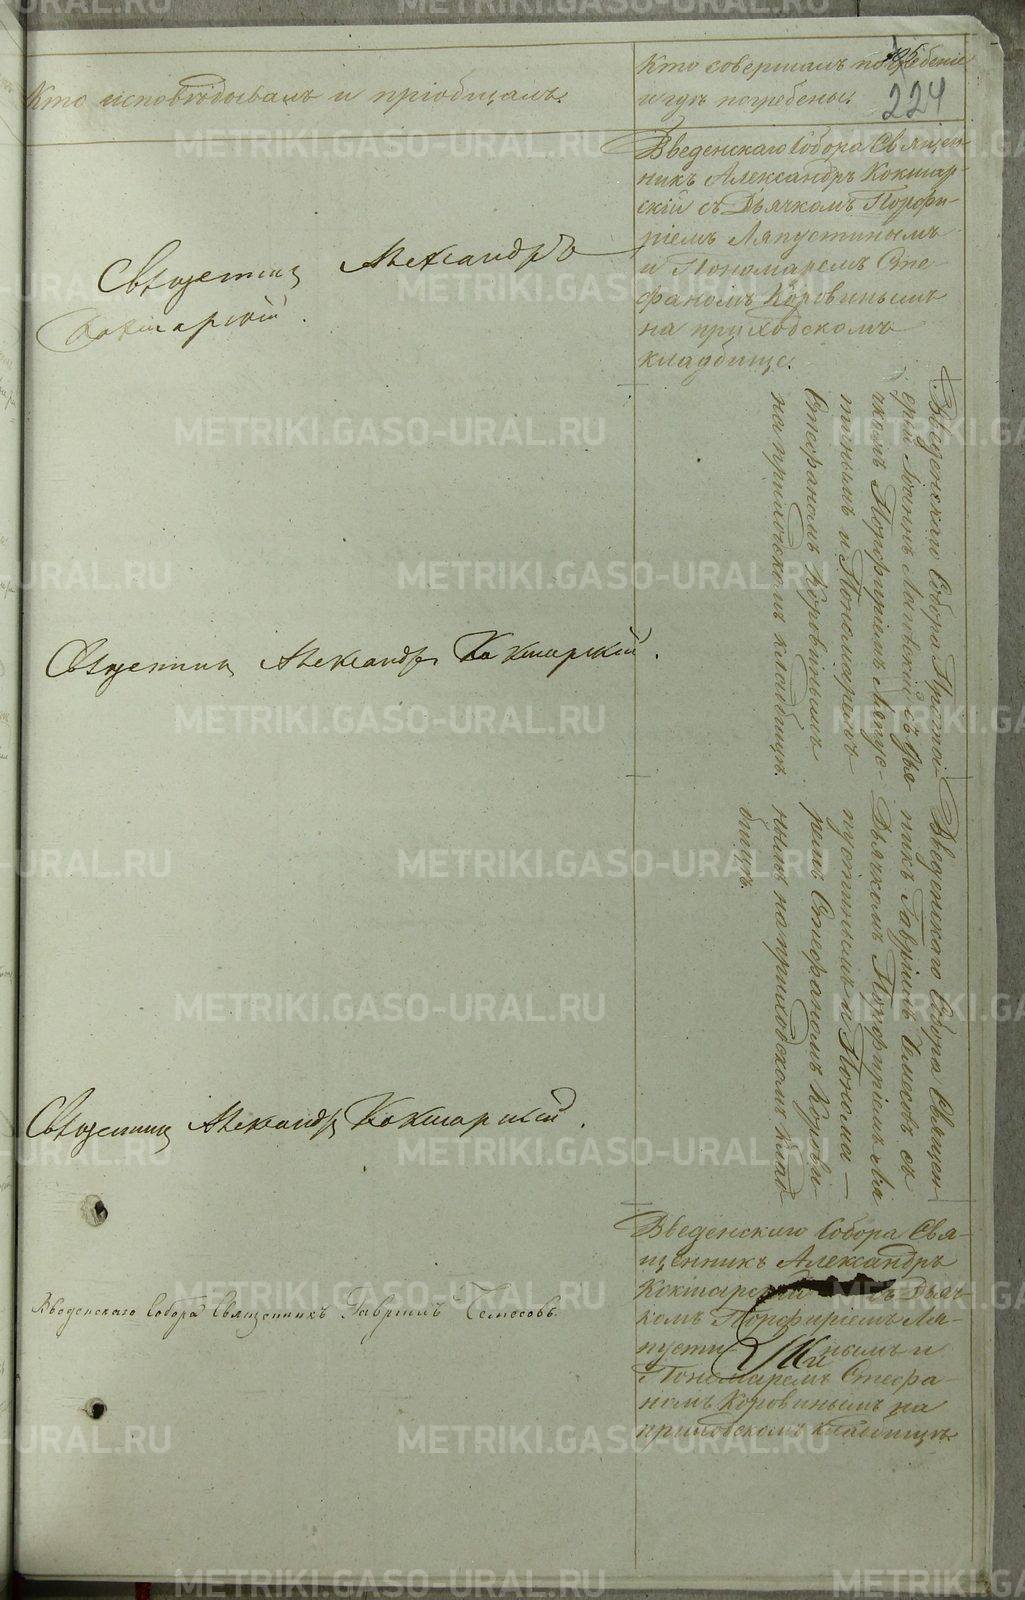 Кто исповѣдывалъ и пріобщалъ.
Кто совершалъ погребеніе
и гдѣ погребены.
224
Введенскаго Собора Священ-
никъ Александръ Кокшар-
скій съ Дьячкомъ Порфи-
ріемъ Ляпустинымъ
и Пономаремъ Сте-
фаномъ Коровинымъ
на приходскомъ
кладбище.
Священник Александръ
Кокшарскій.
Введенскаго Собора Протоі-
ерей Іоаннъ съ Дья-
чкомъ Порфиріемъ Ляпус-
тинымъ и Пономаремъ
Стефаномъ Коровинымъ
на приходскомъ кладбищѣ.
Священник Александръ Кокшарскій.
Введенскаго Собора Священ-
никъ Гавріилъ съ
Дьячкомъ Порфиріемъ Ля-
пустинымъ и Понома-
ремъ Стефаномъ Корови-
нымъ на приходскомъ клад-
бищѣ.
Священник Александръ Кокшарскій.
Введенскаго Собора Свя-
щенникъ Александръ
Кокшарскій съ Дьяч-
комъ Порфиріемъ Ля-
пустинымъ и
Пономаремъ Стефа-
номъ Коровинымъ на
приходскомъ кладбищѣ.
Введенскаго Собора Священникъ Гавріилъ
METRIKI.GASO-URAL.RU